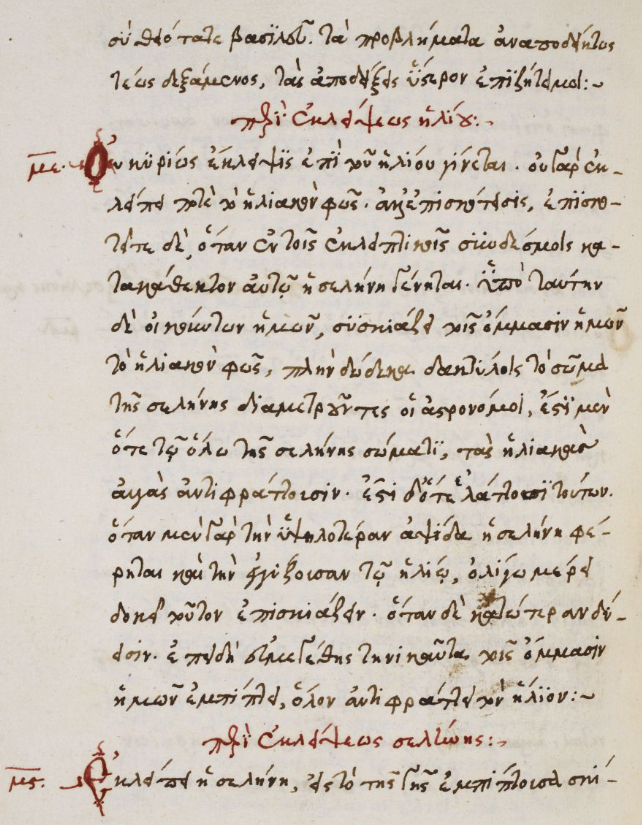 σὺ θεότατε βασϊλεῦ. τὰ προβλήματα ἀναποδείκτως
τέως δεξάμενος, τὰς ἀποδείξεις ὕστερον ἐπιζήτει μοι:~
περὶ ἐκλείψεως ἡλίου:~
με. Οὐ κυρίως ἔκλειψϊς ἐπὶ τοῦ ἡλίου γίνεται. οὐ γὰρ ἐκ-
λείπει ποτὲ τὸ ἡλιακὸν φῶς. ἀλλ' ἐπισκότησις, ἐπϊσκο-
τεῖται δὲ, ὅταν ἐν τοῖς ἐκλειπτικοῖς συνδέσμοις κα-
τακάθεκτον αὐτῷ ἡ σελήνη γένηται. ὑπὸ ταύτην
δὲ οἰκούντων ἡμῶν, συσκιάζει τοῖς ὄμμασιν ἡμῶν
τὸ ἡλιακὸν φῶς, πλὴν δώδεκα δακτύλοις τὸ σῶμα
τῆς σελήνης διαμετροῦντες οἱ ἀστρονόμοι, ἔστι μὲν
ὅτε τῷ ὅλω τῆς σελήνης σώματϊ, τὰς ἡλιακὰς
αὐγὰς ἀντιφράττουσιν. ἔστι δ' ὅτε ἐλάττοσϊ τούτων.
ὅταν μὲν γὰρ τὴν ὑψηλοτέραν ἁψῖδα ἡ σελήνη φέ-
ρηται καὶ τὴν ἐγγίζουσαν τῷ ἡλίῳ, ὀλίγω μέρει
δοκεῖ τοῦτον ἐπισκιάζειν. ὅταν δὲ κατώτεραν δύ-
εισιν. ἐπειδὴ εὐμεγέθης τηνικαῦτα τοῖς ὄμμασιν
ἡμῶν ἐμπίπτει, ὅλον ἀντιφράττει τὸν ἥλϊον:~
περὶ ἐκλείψεως σελήνης:~
μς. Ἐκλείπει ἡ σελήνη, εἰς τὸ τῆς γῆς ἐμπίπτουσα σκί-